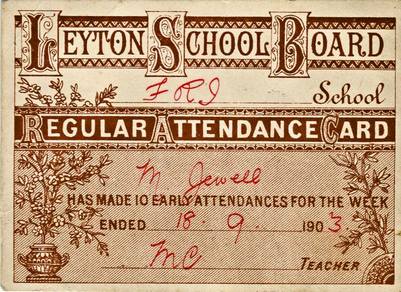 LEYTON SCHOOL BOARD
FRI School
REGULAR ATTENDANCE CARD
M Jewell
HAS MADE 10 EARLY ATTENDANCES FOR THE WEEK
ENDED 18. 9. 1903
MC TEACHER